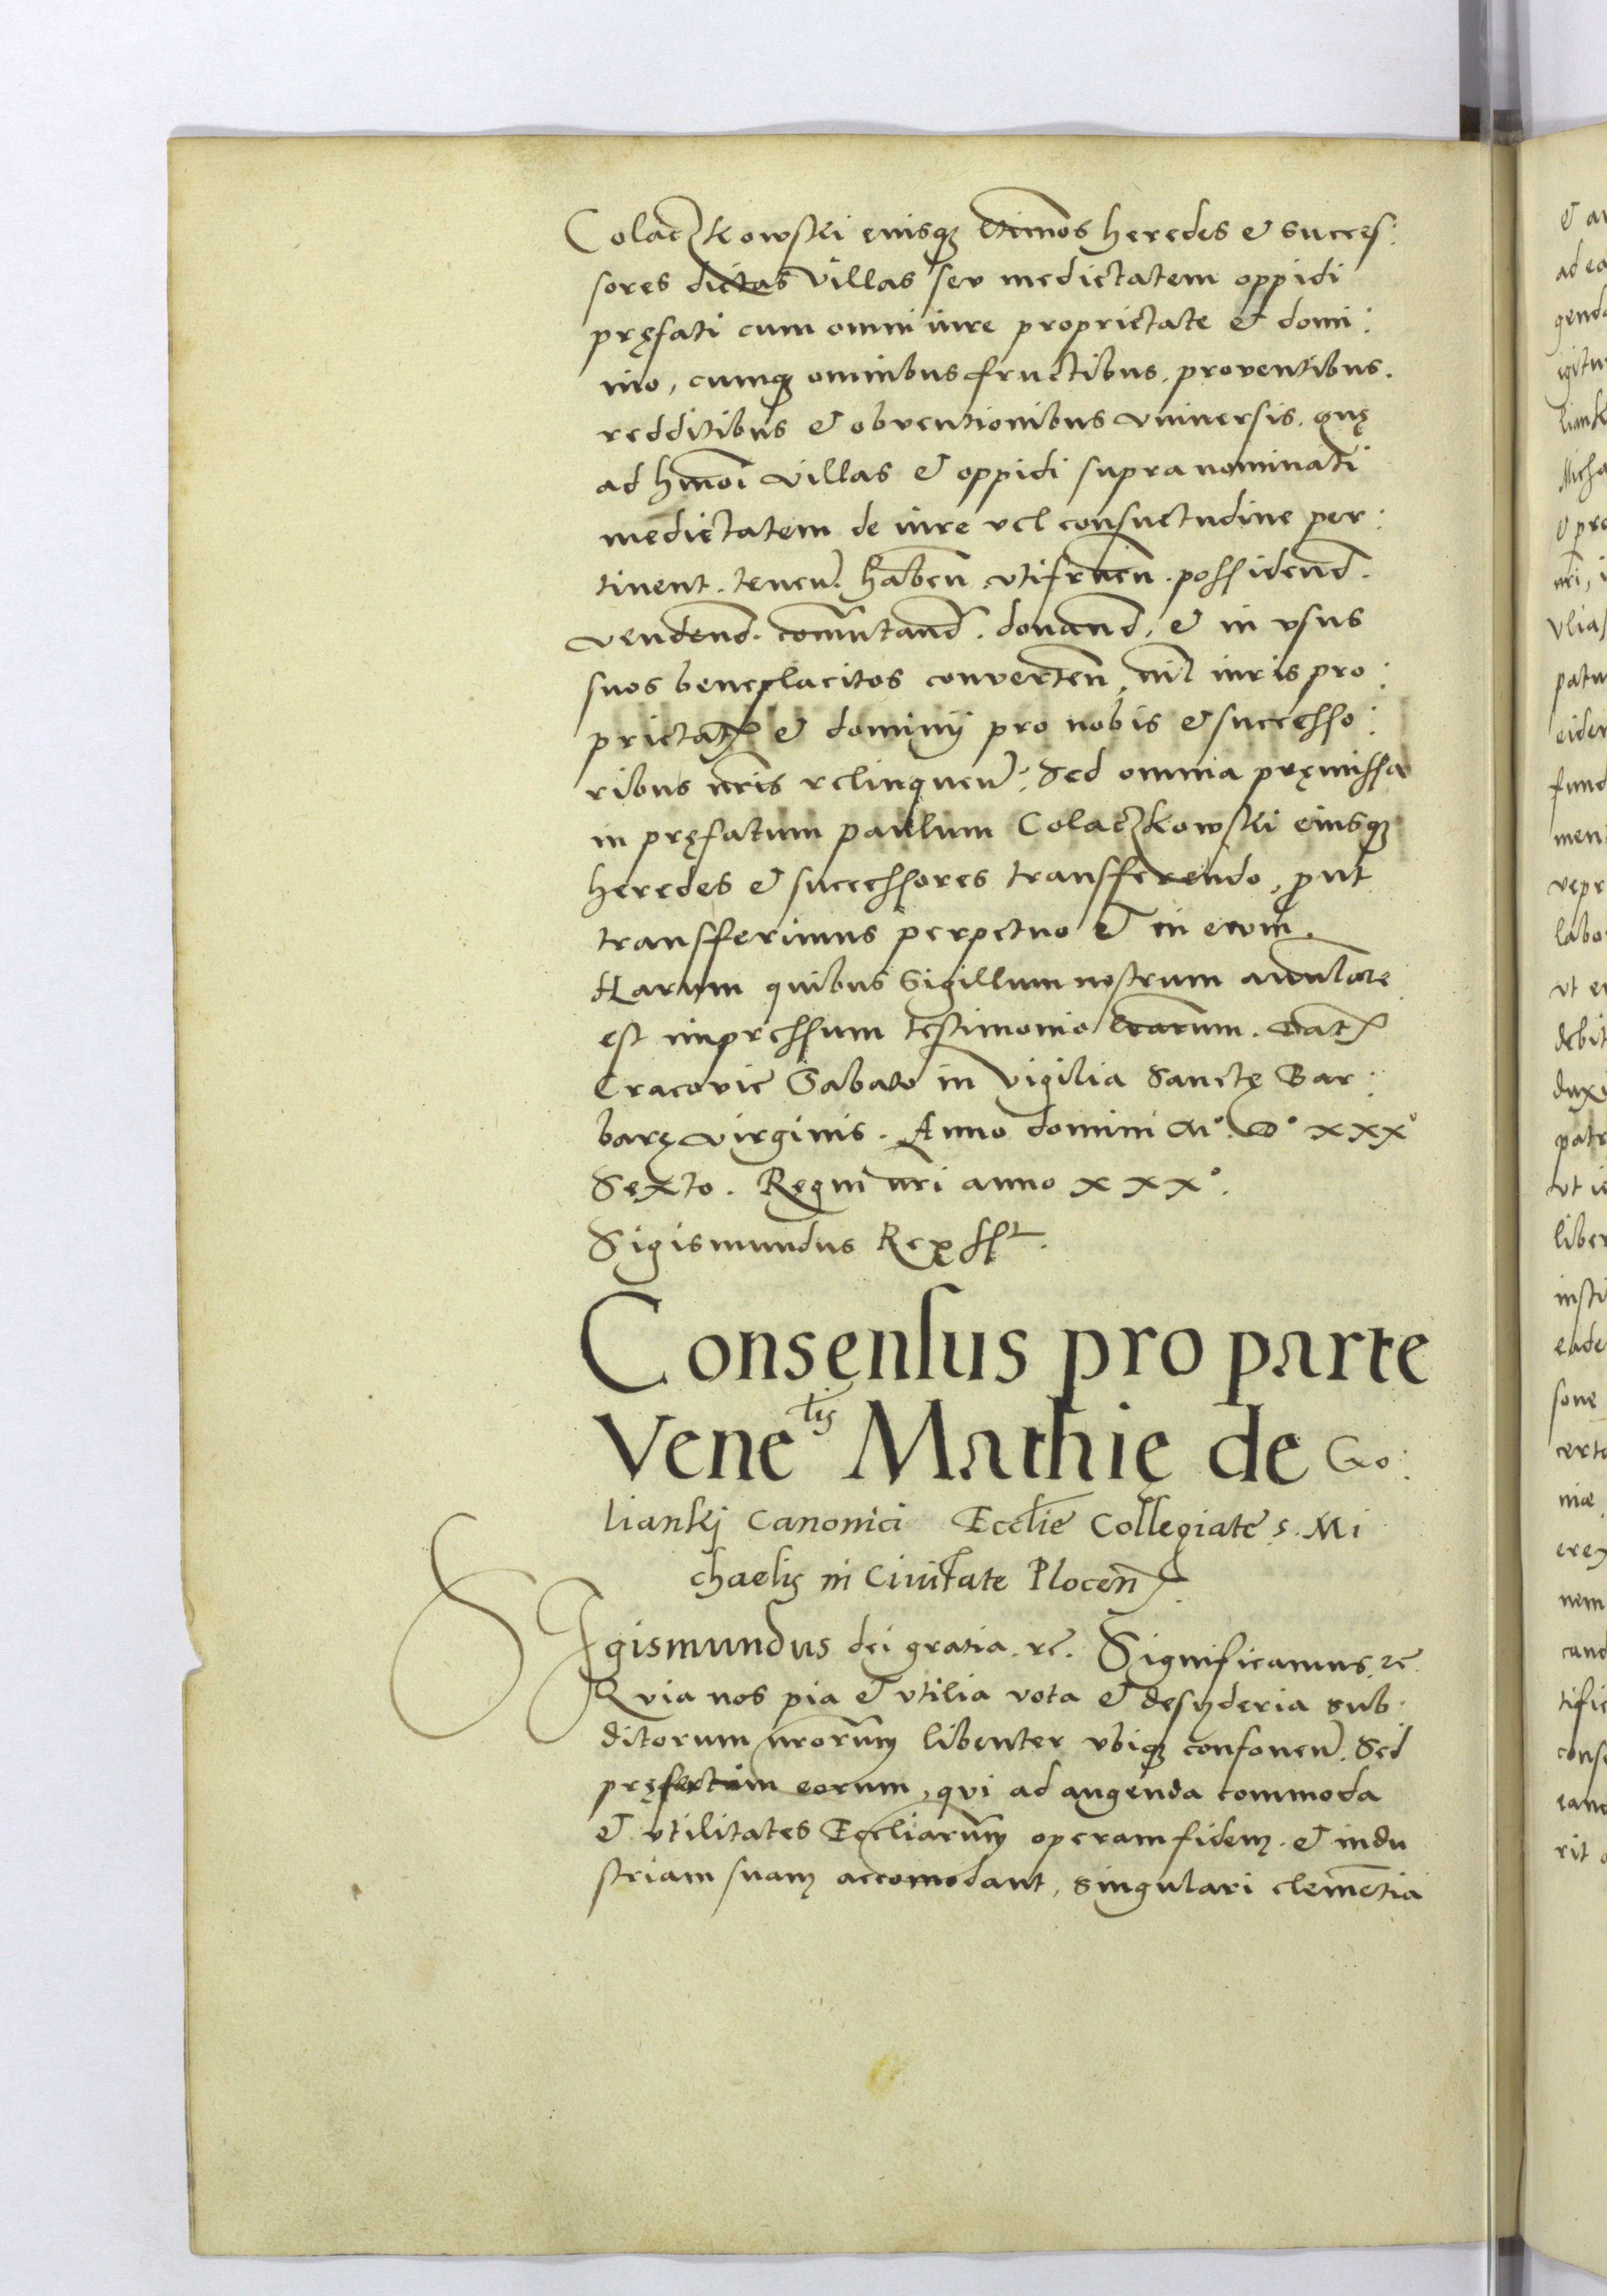 Colaczkowski eiusq₃ ltimos heredes & succes:
sores dictas villas seu medietatem oppidi
pręfati cum omni iure proprietate & domi:
nio, cumq₃ omnibus fructibus, proventibus.
redditibus & obventionibus vniuersis. quę
ad hmoi villas & oppidi supranominati
medietatem de iure vel consuetudine per:
tinent. tenen. haben. vtifruen. possidend.
vendend. commutand. donand. & in vsus
suos beneplacitos converten, nil iuris pro:
prietatꝭ & dominij pro nobis & successo:
ribus nris relinquen: Sed omnia pręmissa
in pręfatum paulum Colaczkowski eiusq₃
heredes & successores transfferendo, prut
transfferimus perpetuo & in evum.
Harum quibus Sigillum nostrum annulare
est impressum testimonio lrarum. Datꝭ
Cracovie Sabato in vigilia Sanctę Bar:
barę virginis. Anno domini M°. D° xxx°
Sexto. Regni nri anno xxx°.
Sigismundus Rex sst.
Consensus pro parte
Venelis Mathię de Go:
lianki Canonici Ecclie Collegiate S. Mi
chaelis in Ciuitate Plocenꝭ.
SIgismundus dei gratia. ꝛc. Significamus. ꝛc.
Quia nos pia & vtilia vota & desyderia sub:
ditorum nrorum libenter vbiq₃ confouen. Sed
pręsertim eorum, qui ad augenda commoda
& vtilitates Eccliarum operam fidem. & indu
striam suam accomodant, singulari clementia